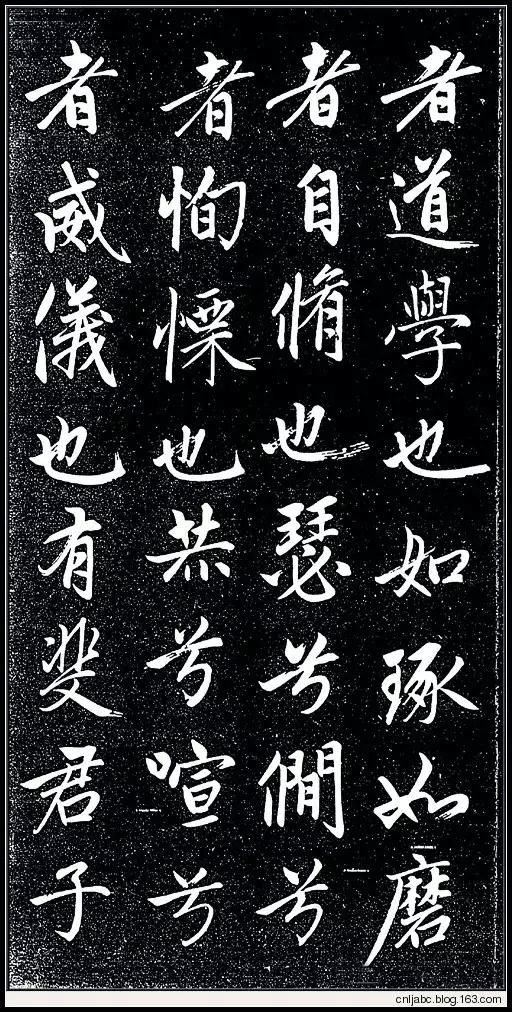 者道學也如琢如磨
者自脩也瑟兮僩兮
者恂慄也赫兮喧兮
者威儀也有斐君子
cnljabc.blog.163.com